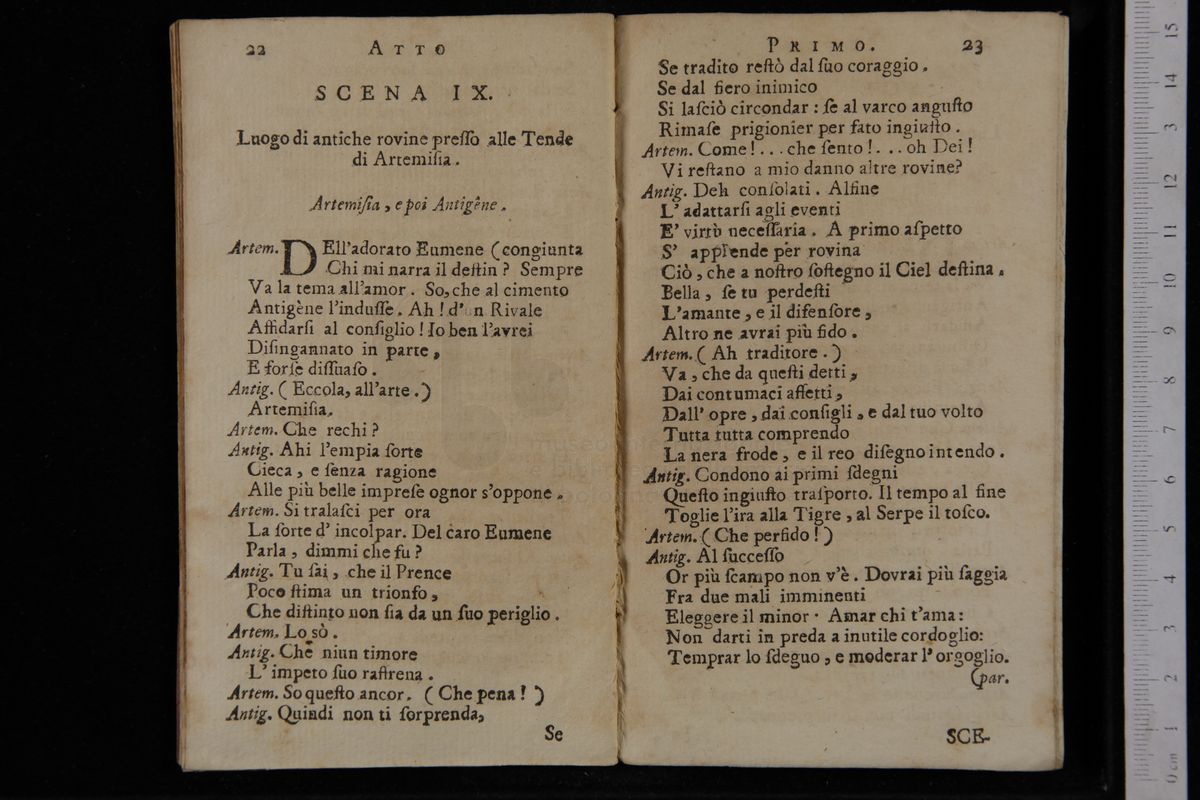 22 ATTO
SCENA IX.
Luogo di antiche rovine preſſo alle Tende
di Artemiſia.
Artemiſia, e poi Antigène.
Artem. DEll'adorato Eumene (congiunta
Chi mi narra il deſtin? Sempre
Va la tema all'amor. So, che al cimento
Antigène l'induſſe. Ah! d'un Rivale
Affidarſi al conſiglio! Io ben l'avrei
Diſingannato in parte,
E forſe diſſuaſo.
Antig. (Eccola, all'arte.)
Artemiſia.
Artem. Che rechi?
Antig. Ahi l'empia ſorte
Cieca, e ſenza ragione
Alle più belle impreſe ognor s'oppone.
Artem. Si tralaſci per ora
La ſorte d'incolpar. Del caro Eumene
Parla, dimmi che fu?
Antig. Tu ſai, che il Prence
Poco ſtima un trionfo,
Che diſtinto non ſia da un ſuo periglio.
Artem. Lo sò.
Antig. Che niun timore
L'impeto ſuo raffrena.
Artem. So queſto ancor. (Che pena!)
Antig. Quindi non ti ſorprenda,
Se
PRIMO. 23
Se tradito reſtò dal ſuo coraggio.
Se dal fiero inimico
Si laſciò circondar: ſe al varco anguſto
Rimaſe prigionier per fato ingiuſto.
Artem. Come!... che ſento!... oh Dei!
Vi reſtano a mio danno altre rovine?
Antig. Deh conſolati. Alfine
L'adattarſi agli eventi
E' virtù neceſſaria. A primo aſpetto
S' apprende per rovina
Ciò, che a noſtro ſoſtegno il Ciel deſtina.
Bella, ſe tu perdeſti
L'amante, e il difenſore,
Altro ne avrai più fido.
Artem. (Ah traditore.)
Va, che da queſti detti,
Dai contumaci affetti,
Dall' opre, dai conſigli, e dal tuo volto
Tutta tutta comprendo
La nera frode, e il reo diſegno intendo.
Antig. Condono ai primi ſdegni
Queſto ingiuſto traſporto. Il tempo al fine
Toglie l'ira alla Tigre, al Serpe il toſco.
Artem. (Che perfido!)
Antig. Al ſucceſſo
Or più ſcampo non v'è. Dovrai più ſaggia
Fra due mali imminenti
Eleggere il minor. Amar chi t'ama:
Non darti in preda a inutile cordoglio:
Temprar lo ſdeguo, e moderar l'orgoglio.
(par.
SCE-